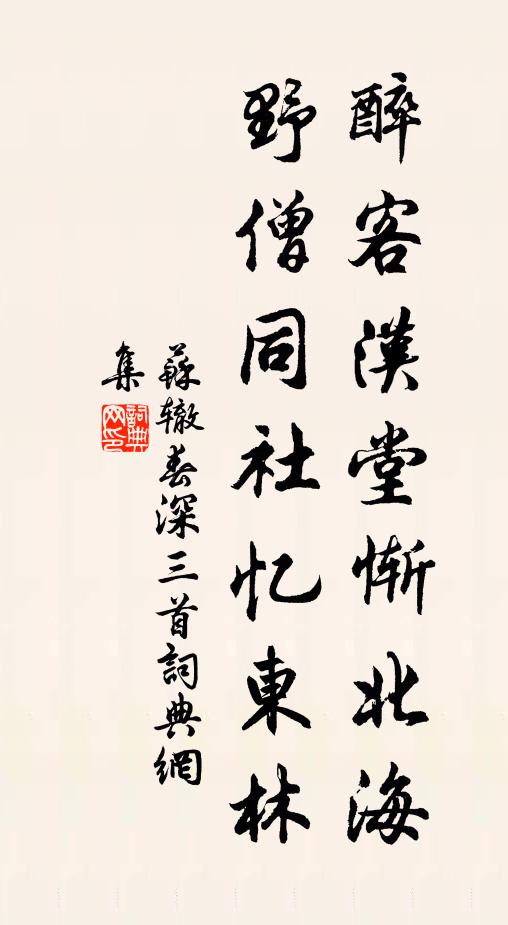 醉客满堂惭北海
野僧同社忆東林
蘇辙春深三首詞典網
集
詞典网印